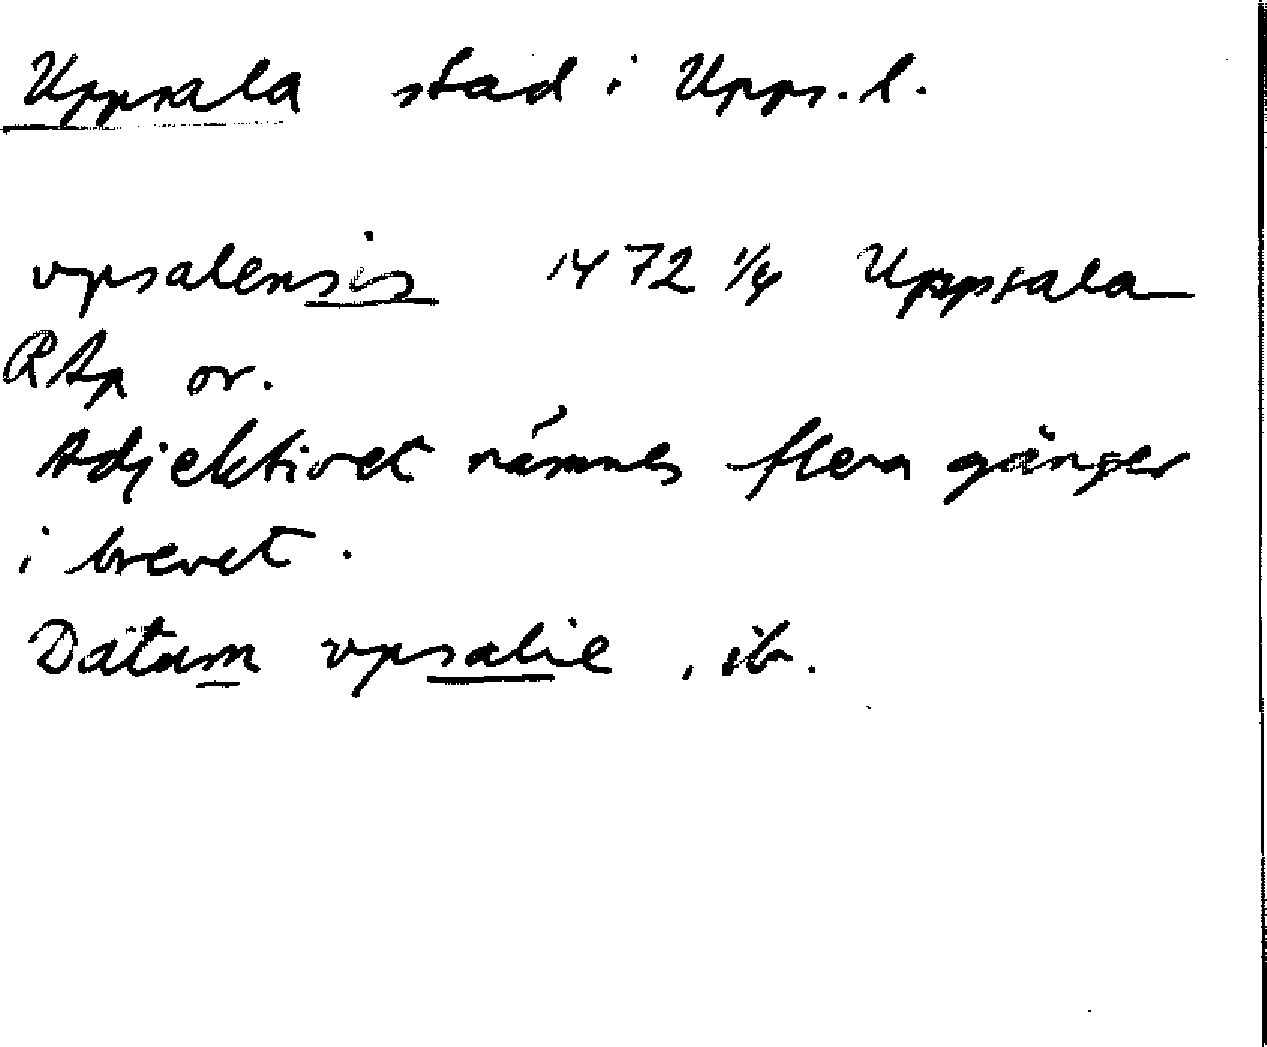 Uppsala stad i Upps.l.
vpsalensis 1472 1/4 Uppsala
RAp or.
Adjektivet nämnes flera gånger
i brevet.
Datum vpsalie, ib.